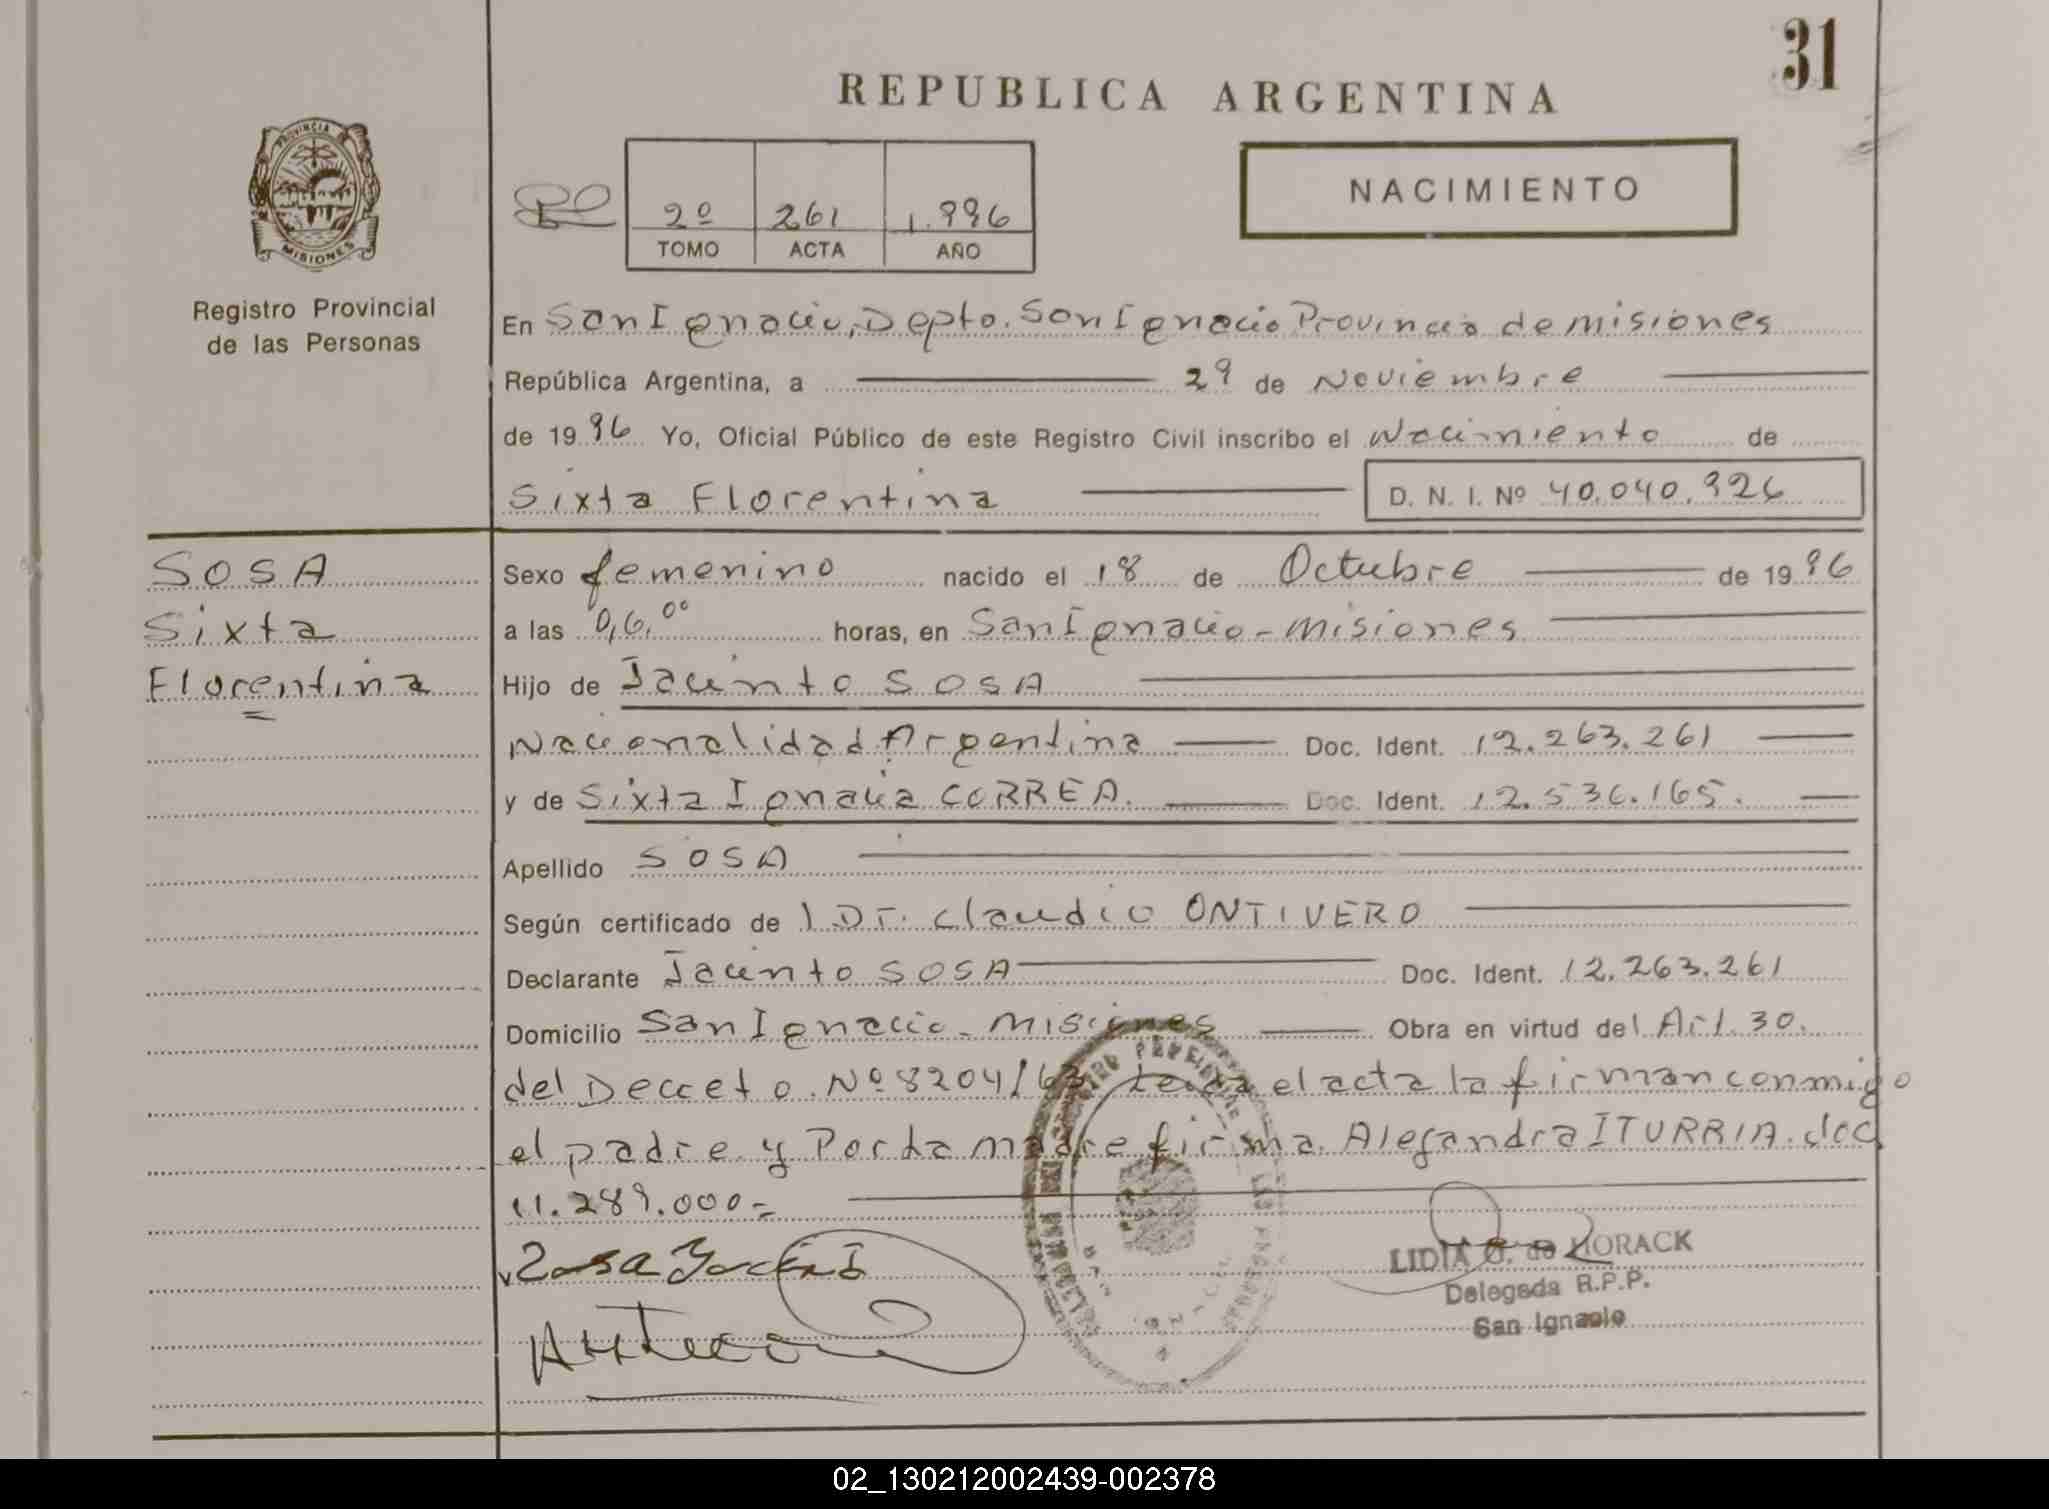 31
REPUBLICA ARGENTINA
NACIMIENTO
2º 261 1.996
TOMO ACTA AÑO
PROVINCIA DE
MISIONES
Registro Provincial
de las Personas
En San Ignacio, Depto. San Ignacio Provincia de misiones
República Argentina, a 29 de Noviembre
de 1996 Yo, Oficial Público de este Registro Civil inscribo el Nacimiento de
Sixta Florentina D. N. I. Nº 40.040.926
SOSA
Sixta
Florentina
Sexo femenino nacido el 18 de Octubre de 1996
a las 06,00 horas, en San Ignacio - misiones
Hijo de Jacinto SOSA
Nacionalidad Argentina Doc. Ident. 12.263.261
y de Sixta Ignacia CORREA. Doc. Ident. 12.536.165.
Apellido SOSA
Según certificado de Dr. Claudio ONTIVERO
Declarante Jacinto SOSA Doc. Ident. 12.263.261
Domicilio San Ignacio - misiones Obra en virtud del Art. 30.
del Decreto Nº 8204/63. Leida el acta la firman conmigo
el padre y Por la madre firma Alejandra ITURRIA. doc.
11.289.000=
Sosa Jacinto
LIDIA G. de HORACK
Delegada R.P.P.
San Ignacio
02_130212002439-002378